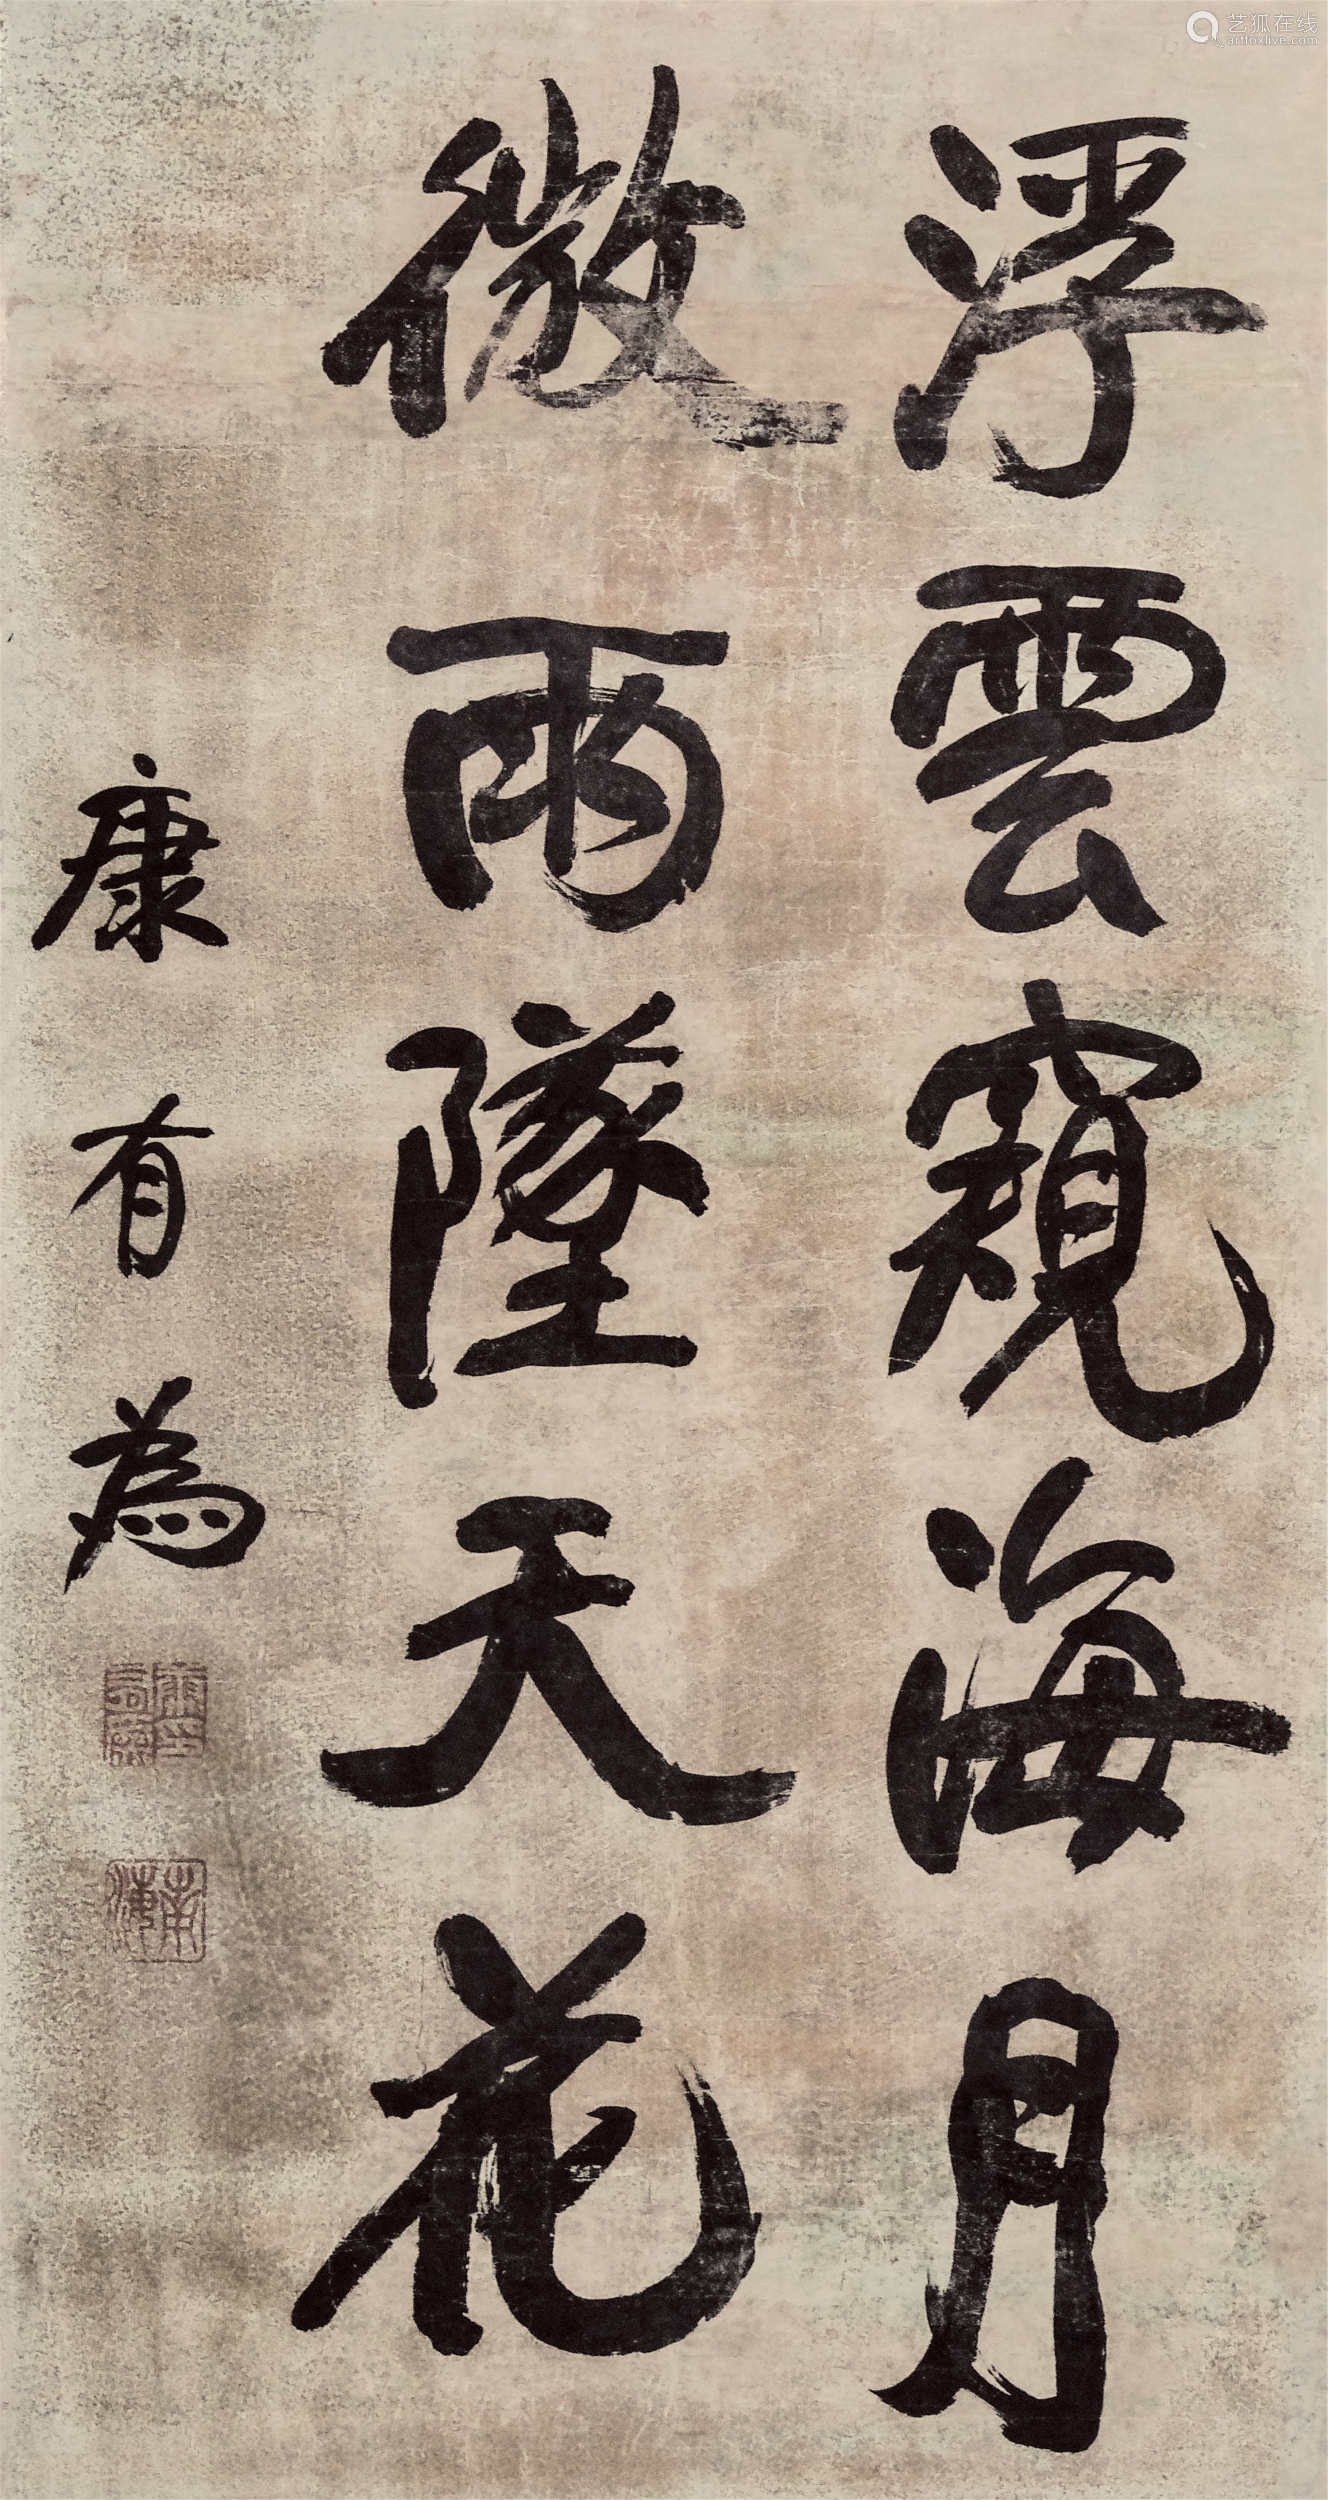 浮雲窺海月
微雨墜天花
康有為
南海
艺狐在线
artfoxlive.com